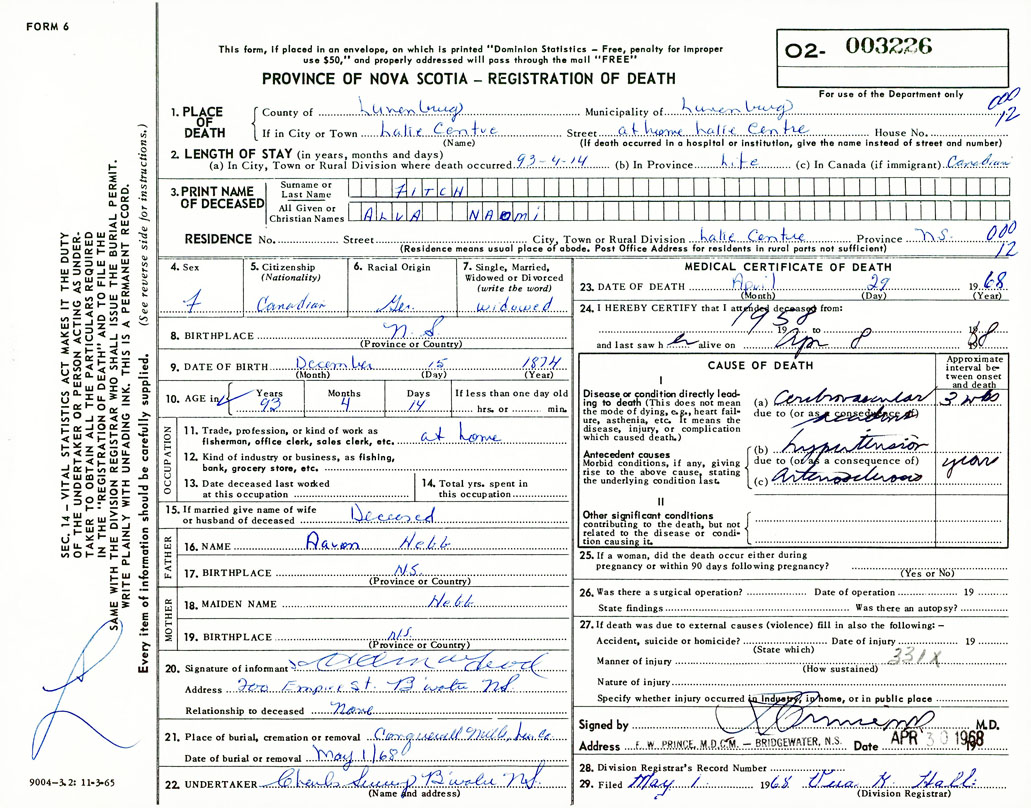 FORM 6
This form, if placed in an envelope, on which is printed "Dominion Statistics – Free, penalty for improper
use $50," and properly addressed will pass through the mail "FREE"
PROVINCE OF NOVA SCOTIA – REGISTRATION OF DEATH
O2- 003226
For use of the Department only
000
12
1. PLACE OF DEATH
County of Lunenburg Municipality of Lunenburg
If in City or Town Lalie Centre Street at home Lalie Centre House No.
(Name) (If death occurred in a hospital or institution, give the name instead of street and number)
2. LENGTH OF STAY (in years, months and days)
(a) In City, Town or Rural Division where death occurred 93-4-14 (b) In Province Life (c) In Canada (if immigrant) Canadian
3. PRINT NAME OF DECEASED
Surname or Last Name FITCH
All Given or Christian Names ALVA NAOMI
RESIDENCE No. Street City, Town or Rural Division Lalie Centre Province N.S.
(Residence means usual place of abode. Post Office Address for residents in rural parts not sufficient)
000
12
4. Sex F
5. Citizenship (Nationality) Canadian
6. Racial Origin Ger.
7. Single, Married, Widowed or Divorced (write the word) widowed
8. BIRTHPLACE N.S
(Province or Country)
9. DATE OF BIRTH December 15 1874
(Month) (Day) (Year)
10. AGE in Years 93 Months 4 Days 14 If less than one day old hrs. or min.
OCCUPATION
11. Trade, profession, or kind of work as fisherman, office clerk, sales clerk, etc. at home
12. Kind of industry or business, as fishing, bank, grocery store, etc.
13. Date deceased last worked at this occupation
14. Total yrs. spent in this occupation
15. If married give name of wife or husband of deceased Deceased
FATHER
16. NAME Aaron Hebb
17. BIRTHPLACE N.S.
(Province or Country)
MOTHER
18. MAIDEN NAME Hebb
19. BIRTHPLACE N.S.
(Province or Country)
20. Signature of informant
Address 200 Empire St. B'water N.S.
Relationship to deceased None
21. Place of burial, cremation or removal Conquerall Mills, Lun. Co.
Date of burial or removal May 1/68
22. UNDERTAKER Charles B'water N.S.
(Name and address)
MEDICAL CERTIFICATE OF DEATH
23. DATE OF DEATH April 29 1968
(Month) (Day) (Year)
24. I HEREBY CERTIFY that I attended deceased from:
1958 19 to 19
and last saw h er alive on Apr 8 1968
CAUSE OF DEATH
Approximate interval between onset and death
I
Disease or condition directly leading to death (This does not mean the mode of dying, e.g., heart failure, asthenia, etc. It means the disease, injury, or complication which caused death.)
(a) Cerebrovascular accident 3 wks
due to (or as a consequence of)
Antecedent causes
Morbid conditions, if any, giving rise to the above cause, stating the underlying condition last.
(b) hypertension
due to (or as a consequence of) years
(c) Arteriosclerosis
II
Other significant conditions
contributing to the death, but not related to the disease or condition causing it.
25. If a woman, did the death occur either during pregnancy or within 90 days following pregnancy?
(Yes or No)
26. Was there a surgical operation? Date of operation 19
State findings Was there an autopsy?
27. If death was due to external causes (violence) fill in also the following: –
Accident, suicide or homicide? Date of injury 19
(State which)
Manner of injury 331X
(How sustained)
Nature of injury
Specify whether injury occurred in Industry, in home, or in public place
Signed by M.D.
Address F. W. PRINCE, M.D.C.M. – BRIDGEWATER, N.S. Date APR 30 1968
28. Division Registrar's Record Number
29. Filed May 1 1968 K. Hall
(Division Registrar)
SEC. 14 – VITAL STATISTICS ACT MAKES IT THE DUTY
OF THE UNDERTAKER OR PERSON ACTING AS UNDER-
TAKER TO OBTAIN ALL THE PARTICULARS REQUIRED
IN THE "REGISTRATION OF DEATH" AND TO FILE THE
SAME WITH THE DIVISION REGISTRAR WHO SHALL ISSUE THE BURIAL PERMIT.
WRITE PLAINLY WITH UNFADING INK. THIS IS A PERMANENT RECORD.
Every item of information should be carefully supplied. (See reverse side for instructions.)
9004-3.2: 11-3-65